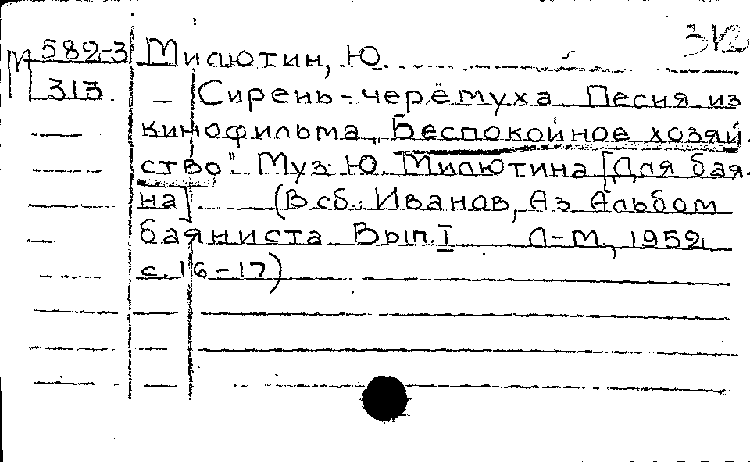 312
М 582-3 Милютин, Ю.
313. — Сирень-черёмуха. Песня из
кинофильма „Беспокойное хозяй-
ство". Муз. Ю. Милютина [Для бая-
на]. (В сб.: Иванов, Аз. Альбом
баяниста. Вып. I Л-М, 1952
с. 16-17)